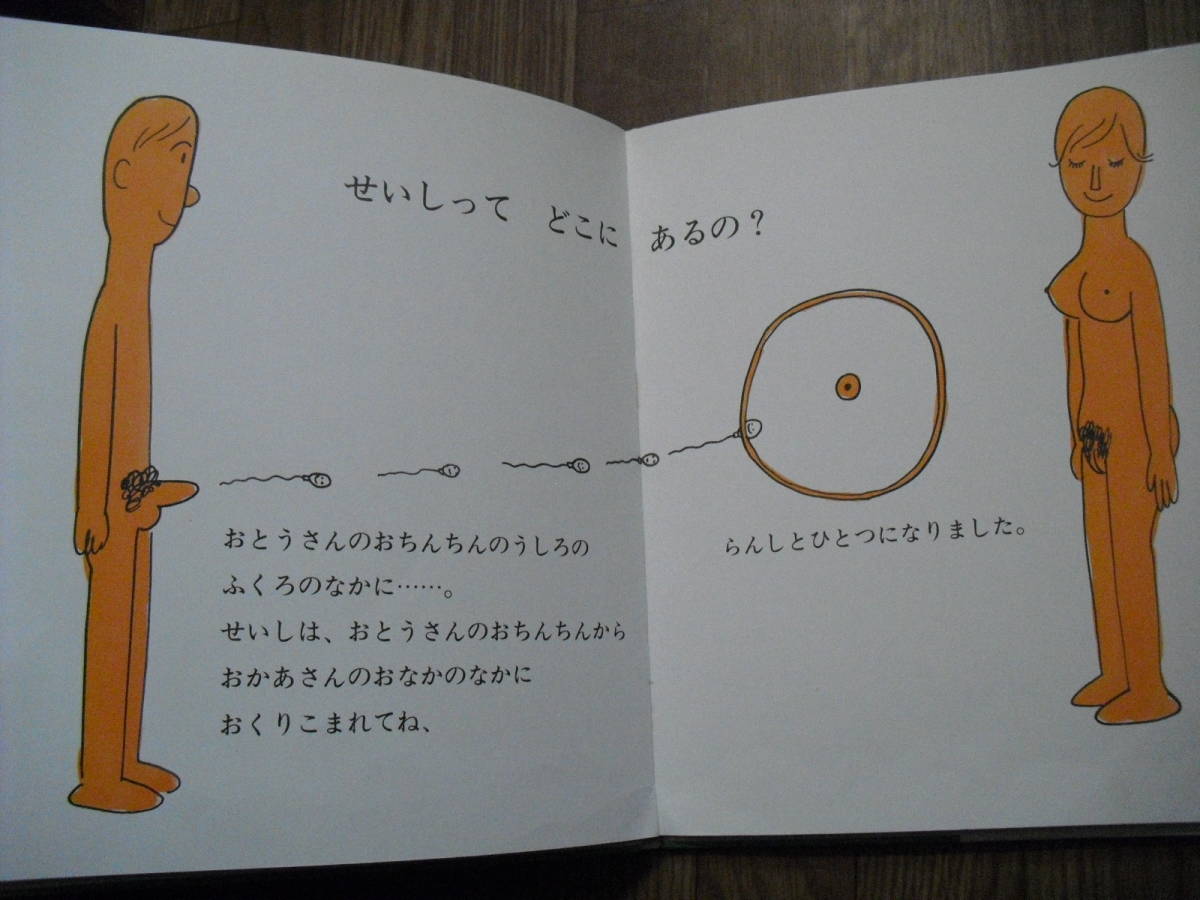 せいしって どこに あるの？
おとうさんのおちんちんのうしろの
ふくろのなかに……。
せいしは、おとうさんのおちんちんから
おかあさんのおなかのなかに
おくりこまれてね、
らんしとひとつになりました。